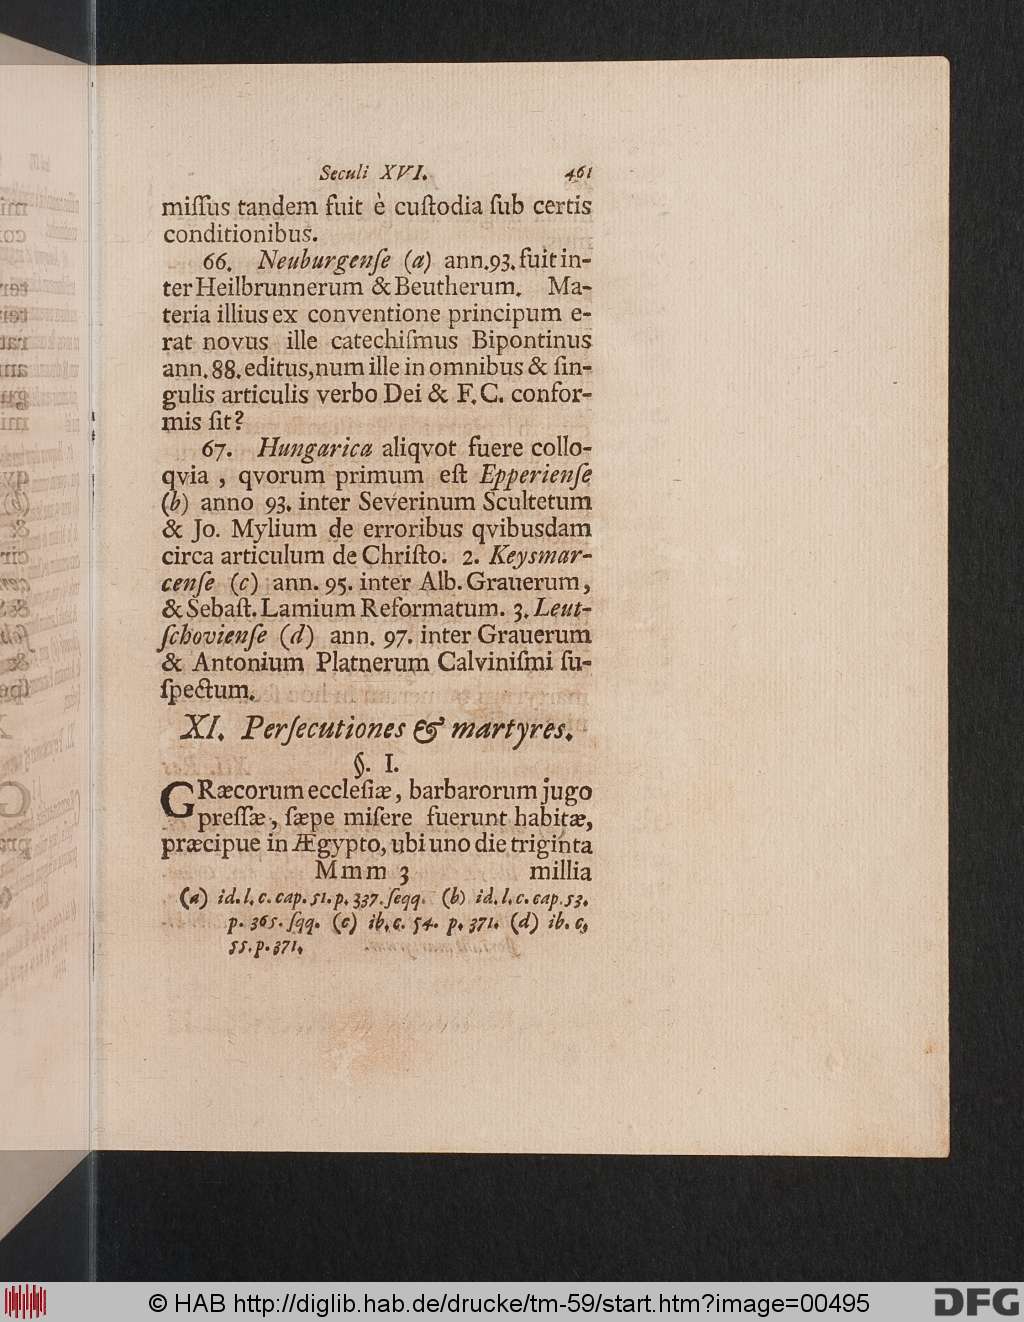 Seculi XVI. 461
miſſus tandem fuit è cuſtodia ſub certis
conditionibus.
66. Neuburgenſe (a) ann.93. fuit in-
ter Heilbrunnerum & Beutherum. Ma-
teria illius ex conventione principum e-
rat novus ille catechiſmus Bipontinus
ann. 88. editus, num ille in omnibus & ſin-
gulis articulis verbo Dei & F. C. confor-
mis ſit?
67. Hungarica aliqvot fuere collo-
qvia, qvorum primum eſt Epperienſe
(b) anno 93. inter Severinum Scultetum
& Jo. Mylium de erroribus qvibusdam
circa articulum de Chriſto. 2. Keysmar-
cenſe (c) ann. 95. inter Alb. Grauerum,
& Sebaſt. Lamium Reformatum. 3. Leut-
ſchovienſe (d) ann. 97. inter Grauerum
& Antonium Platnerum Calviniſmi ſu-
ſpectum.
XI. Perſecutiones & martyres.
§. I.
GRæcorum eccleſiæ, barbarorum jugo
preſſæ, ſæpe miſere fuerunt habitæ,
præcipue in Ægypto, ubi uno die triginta
Mmm 3 millia
(a) id. l. c. cap. 51. p. 337. ſeqq. (b) id. l. c. cap. 53.
p. 365. ſqq. (c) ib. c. 54. p. 371. (d) ib. c,
55. p. 371.
© HAB http://diglib.hab.de/drucke/tm-59/start.htm?image=00495
DFG